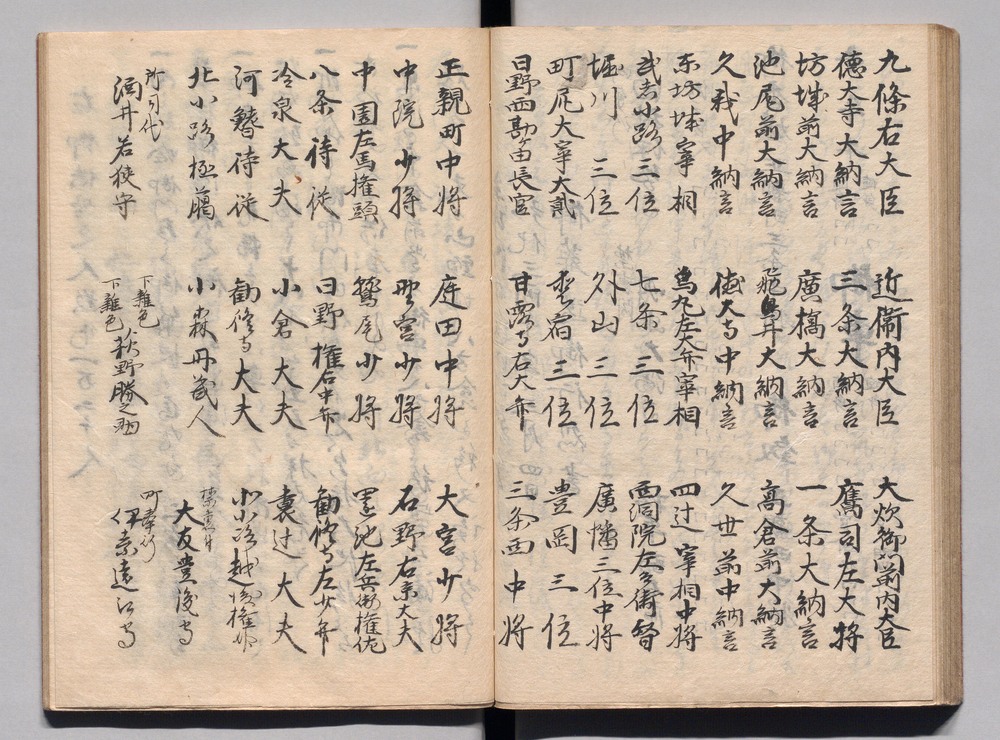 九條右大臣 近衞内大臣 大炊御門前内大臣
徳大寺大納言 三条大納言 鷹司左大将
坊城前大納言 廣橋大納言 一条大納言
池尾前大納言 飛鳥井大納言 高倉前大納言
久我中納言 徳大寺中納言 久世前中納言
東坊城宰相 烏丸左大弁宰相 四辻宰相中将
武者小路三位 七条三位 西洞院左兵衛督
堀川三位 外山三位 廣幡三位中将
町尻大宰大貳 宿三位 豊岡三位
日野西勘ケ由長官 甘露寺右大弁 三条西中将
正親町中将 庭田中将 大宮少将
中院少将 野宮少将 石野右京大夫
中園左馬権頭 鷲尾少将 池左兵衛権佐
八条侍従 日野権右中弁 勧修寺左少弁
冷泉大夫 小倉大夫 裏辻大夫
河鰭侍従 勧修寺大夫 北小路越後権介
北小路極臈 小森丹蔵人 禁裏附 大友豊後守
所司代 酒井若狭守 下雑色 下雑色 荻野勝之助 町奉行 伊奈遠江守